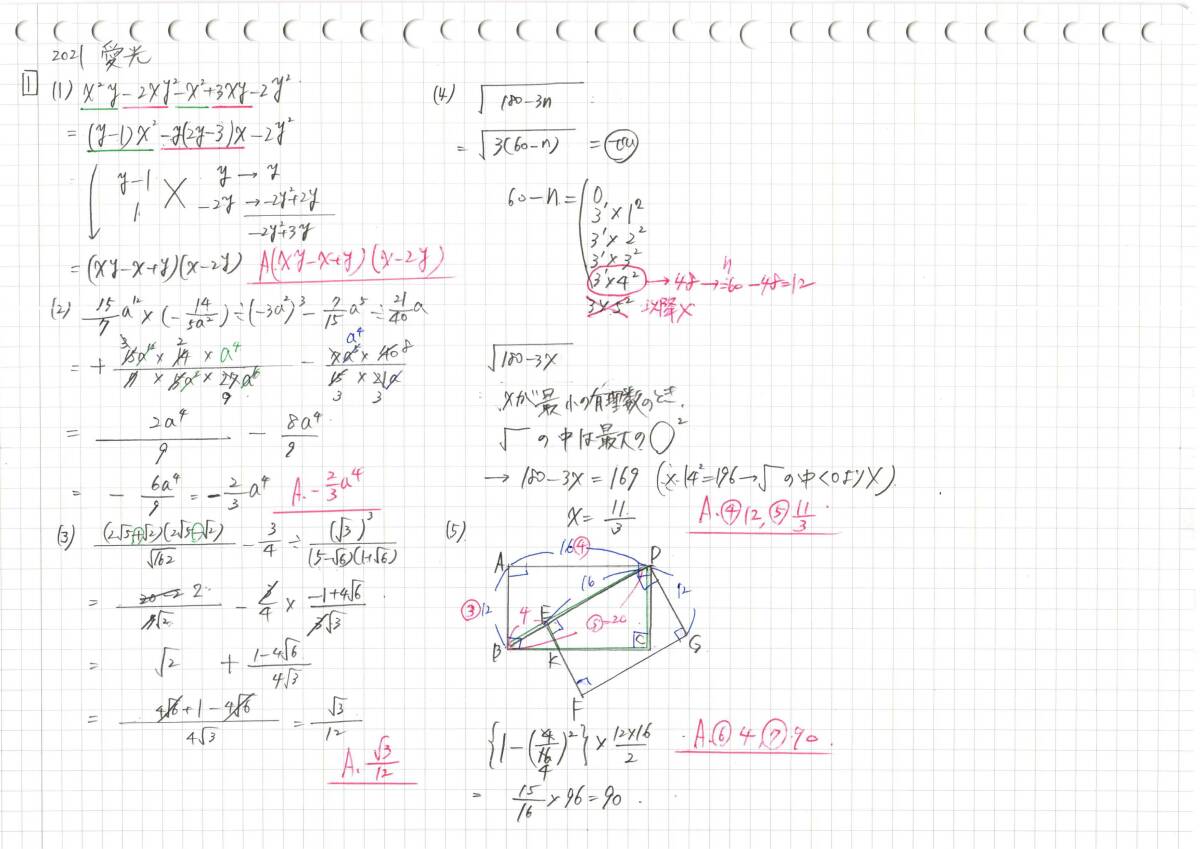 2021 愛光
1
(1) x²y-2xy²-x²+3xy-2y²
= (y-1)x²-y(2y-3)x-2y²
y-1 y → y
1 -2y → -2y²+2y
-2y²+3y
= (xy-x+y)(x-2y) A(xy-x+y)(x-2y)
(2) 15/7 a¹² × (-14/5a²) ÷ (-3a²)³ - 7/15 a⁵ ÷ 21/40 a
= + 15a¹² × 14 × a⁴ / 7 × 5a² × 27a⁶ - 7a⁵ × 40 8 / 15 × 21a
3 2 9 a⁴ 3 3
= 2a⁴/9 - 8a⁴/9
= - 6a⁴/9 = -2/3 a⁴ A. -2/3 a⁴
(3) (2√5+√2)(2√5-√2)/√162 - 3/4 ÷ (√3)³/(5-√6)(1+√6)
= 20-2 2/9√2 - 3/4 × -1+4√6/3√3
= √2 + 1-4√6/4√3
= 4√6+1-4√6/4√3 = √3/12
A. √3/12
(4) √180-3n
= √3(60-n) = 
60-n = 0,
3'×1²
3'×2²
3'×3²
3'×4² → 48 → n=60-48=12
3×5² 以降×
√180-3x
xが最小の有理数のとき、
√の中は最大の○²
→ 180-3x = 169 (x 14²=196→√の中<0より×)
x = 11/3 A. ④12, ⑤11/3
(5)
16 ④
A D
16 12
③ 12 4 E ⑤-20
B K C G
F
{1-(4/16)²} × 12×16/2 A.⑥4, ⑦90.
4
= 15/16 × 96 = 90.